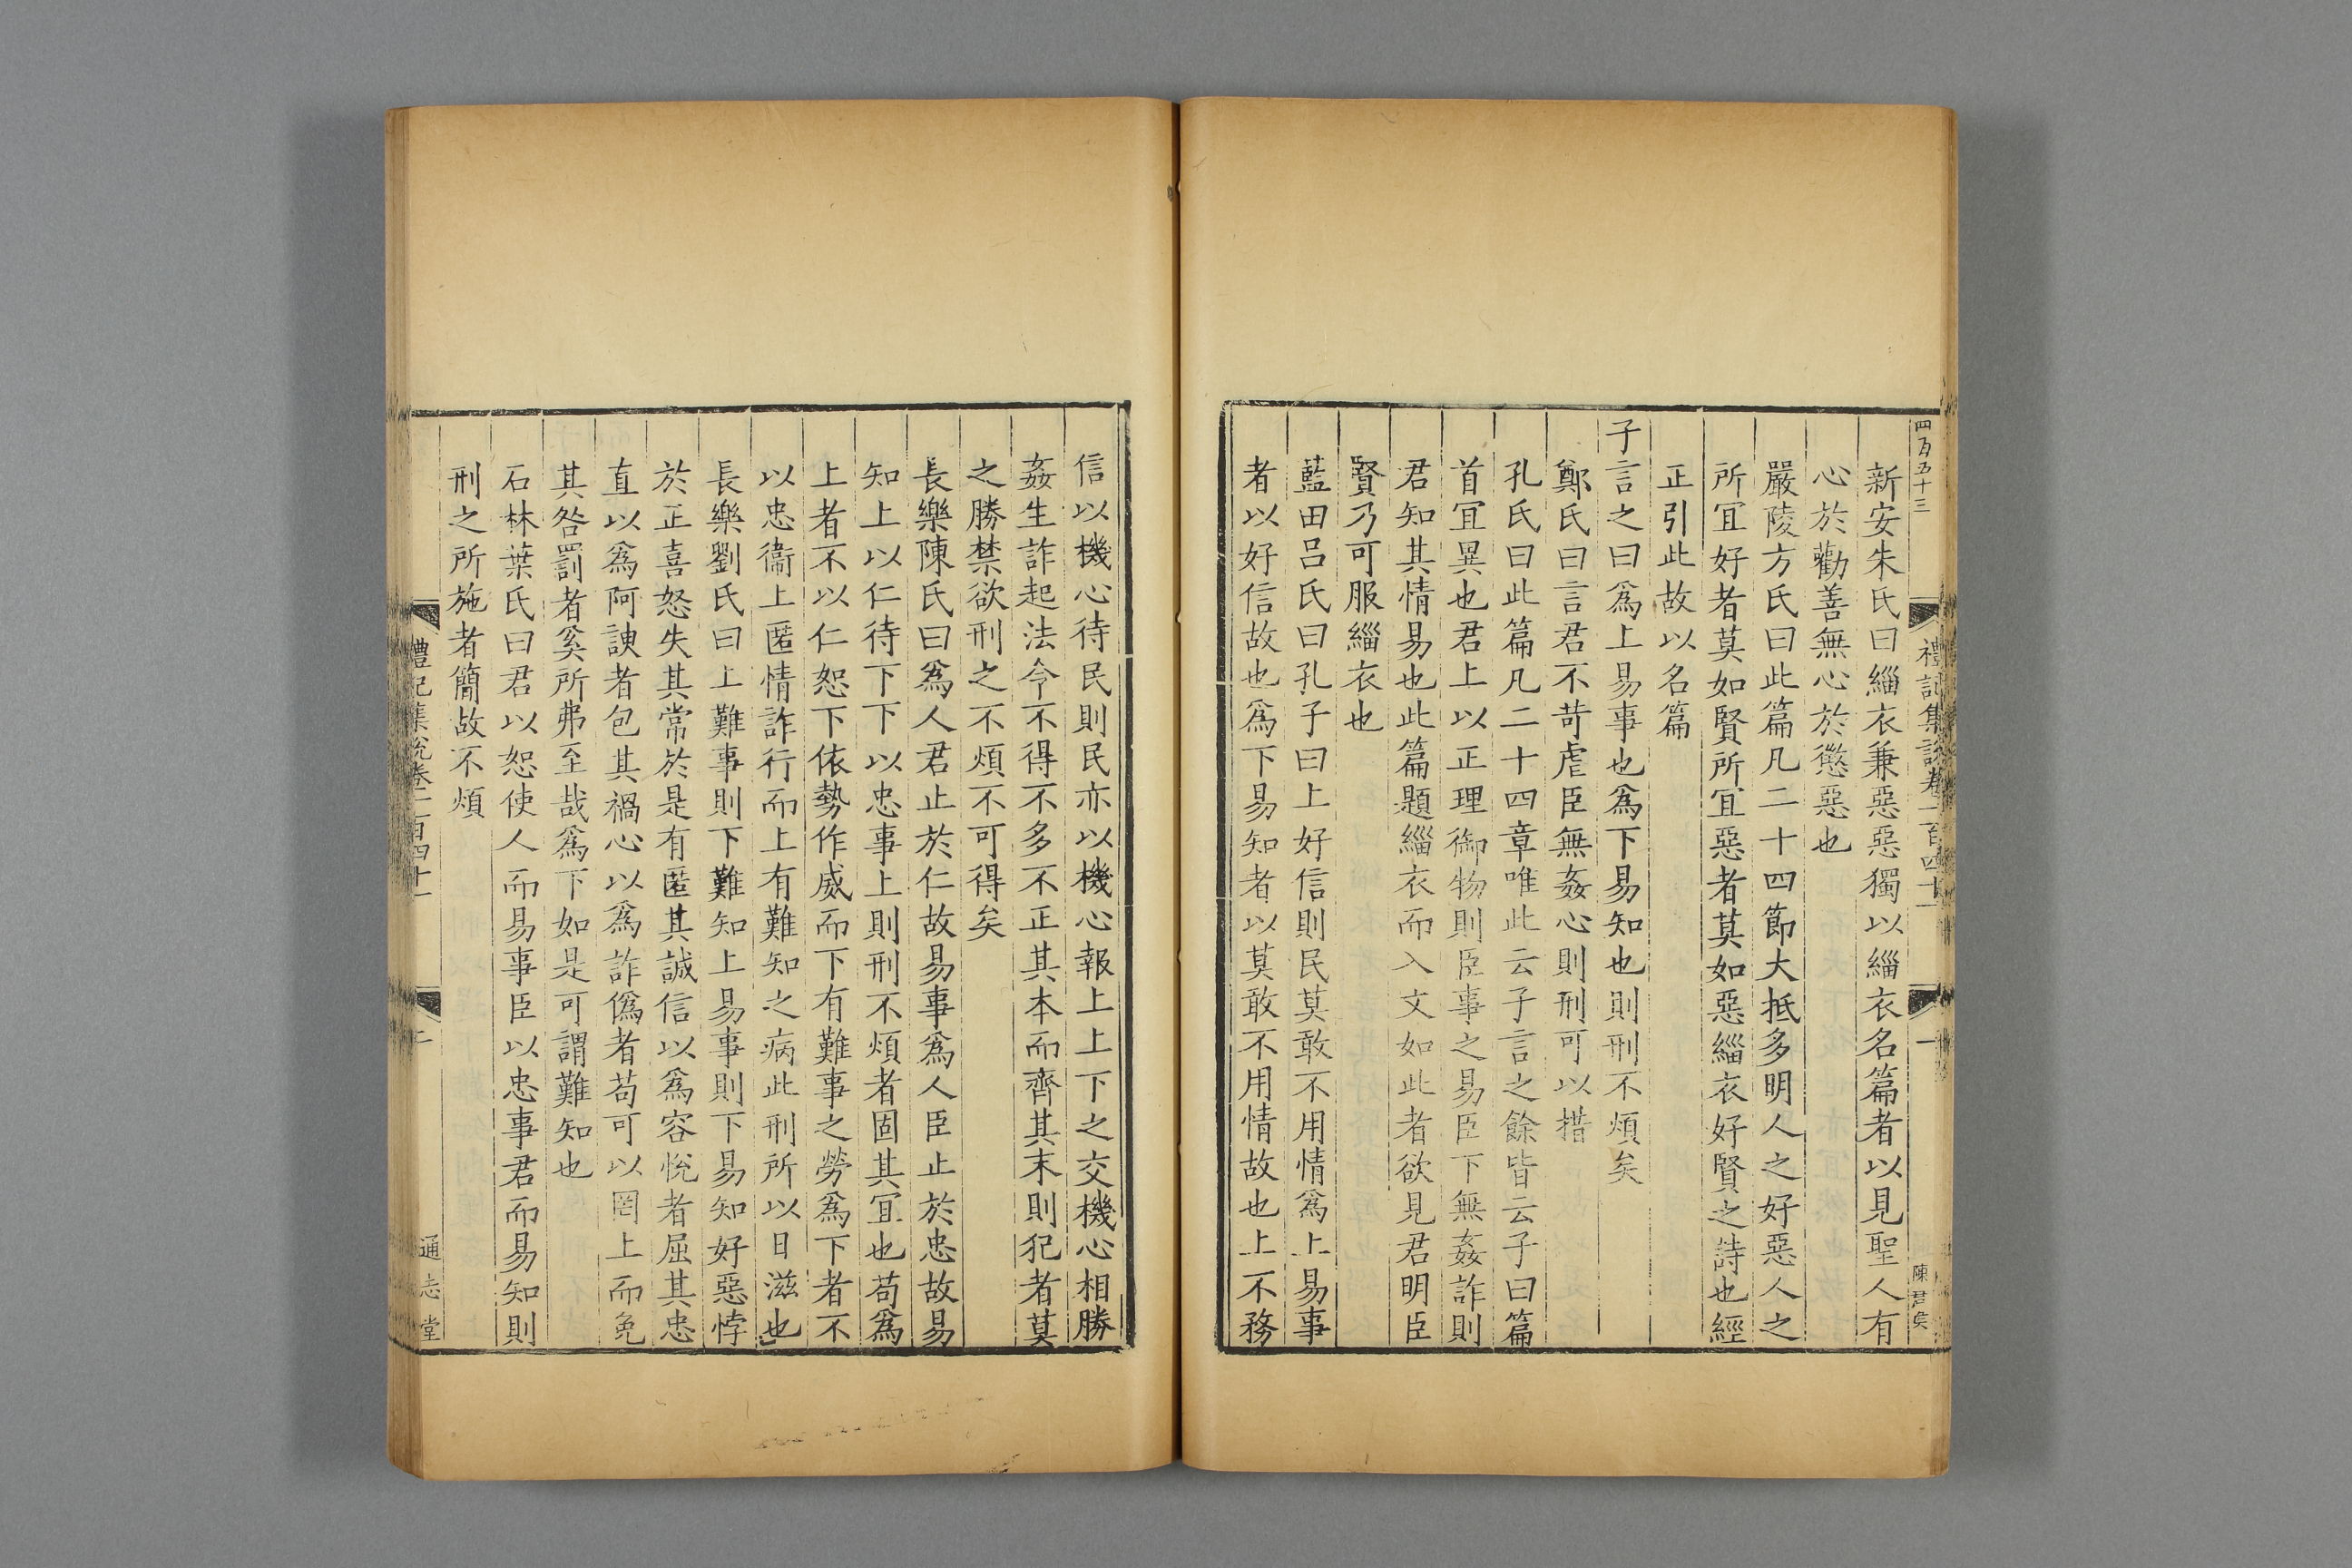 四百五十三
禮記集說卷一百四十一
一
陳君矣
新安朱氏曰緇衣兼惡惡獨以緇衣名篇者以見聖人有
心於勸善無心於懲惡也
嚴陵方氏曰此篇凡二十四節大抵多明人之好惡人之
所宜好者莫如賢所宜惡者莫如惡緇衣好賢之詩也經
正引此故以名篇
子言之曰爲上易事也爲下易知也則刑不煩矣
鄭氏曰言君不苛虐臣無姦心則刑可以措
孔氏曰此篇凡二十四章唯此云子言之餘皆云子曰篇
首宜異也君上以正理御物則臣事之易臣下無姦詐則
君知其情易也此篇題緇衣而入文如此者欲見君明臣
賢乃可服緇衣也
藍田呂氏曰孔子曰上好信則民莫敢不用情爲上易事
者以好信故也爲下易知者以莫敢不用情故也上不務
信以機心待民則民亦以機心報上上下之交機心相勝
姦生詐起法令不得不多不正其本而齊其末則犯者莫
之勝禁欲刑之不煩不可得矣
長樂陳氏曰爲人君止於仁故易事爲人臣止於忠故易
知上以仁待下下以忠事上則刑不煩者固其宜也苟爲
上者不以仁恕下依勢作威而下有難事之勞爲下者不
以忠衞上匿情詐行而上有難知之病此刑所以日滋也
長樂劉氏曰上難事則下難知上易事則下易知好惡悖
於正喜怒失其常於是有匿其誠信以爲容悅者屈其忠
直以爲阿諛者包其禍心以爲詐僞者苟可以罔上而免
其咎罰者奚所弗至哉爲下如是可謂難知也
石林葉氏曰君以恕使人而易事臣以忠事君而易知則
刑之所施者簡故不煩
禮記集說卷一百四十一
二
通志堂